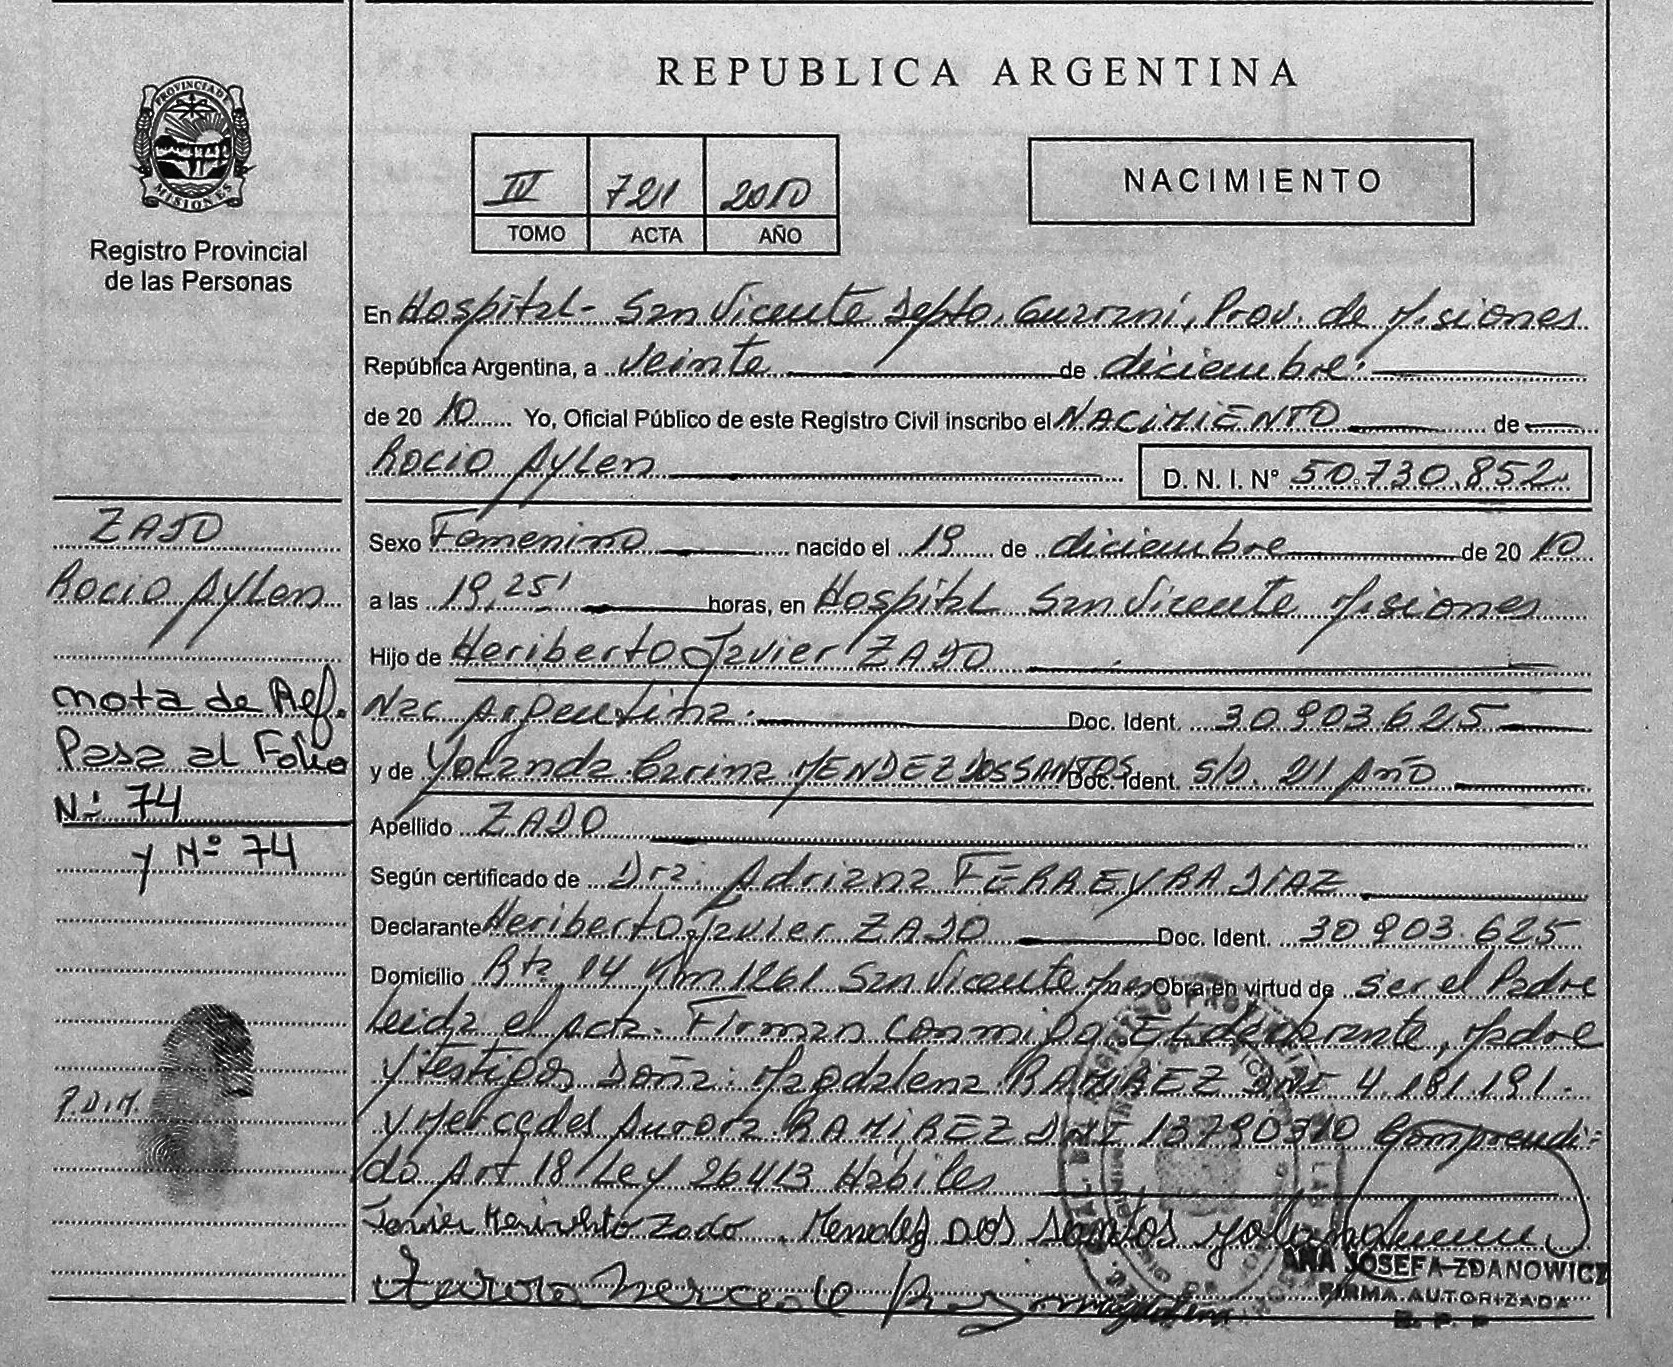 PROVINCIA DE
MISIONES
Registro Provincial
de las Personas
REPUBLICA ARGENTINA
III 721 2010
TOMO ACTA AÑO
NACIMIENTO
En Hospital - San Vicente Depto. Guaraní, Prov. de Misiones
República Argentina, a veinte de diciembre
de 20 10 Yo, Oficial Público de este Registro Civil inscribo el NACIMIENTO de
Rocio Aylen
D. N. I. Nº 50.730.852
ZADO
Rocio Aylen
nota de Ref.
Pasa al Folio
Nº 74
y Nº 74
P.D.M.
Sexo Femenino nacido el 19 de diciembre de 20 10
a las 19,25' horas, en Hospital San Vicente Misiones
Hijo de Heriberto Javier ZADO
Nac Argentina. Doc. Ident. 30.903.625
y de Yolanda Carina MENDEZ DOSSANTOS Doc. Ident. S/D. 21 Año
Apellido ZADO
Según certificado de Dra: Adriana FERAEYRA DIAZ
Declarante Heriberto Javier ZADO Doc. Ident. 30903.625
Domicilio Rta 14 Km 1261 San Vicente Mnes Obra en virtud de ser el Padre
Leida el Acta. Firman conmigo El declarante, Madre
y testigos Doña: Magdalena RAMIREZ DNI 4.181.191.
y Mercedes Aurora RAMIREZ DNI Comprendi-
do Art 18 Ley 26413 Hábiles
Javier Heriberto Zado Mendez Dos Santos Yolanda
ANA JOSEFA ZDANOWICZ
FIRMA AUTORIZADA
R. P. P